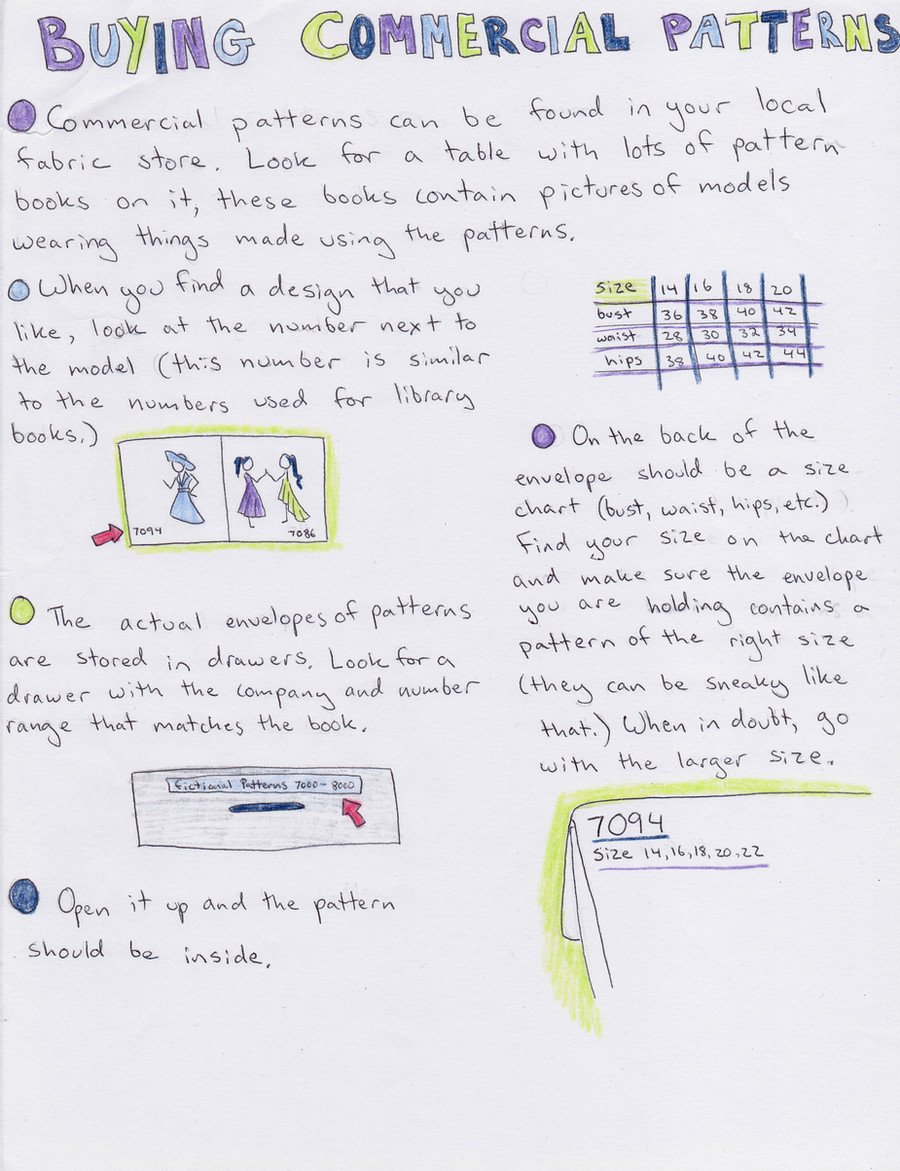 BUYING COMMERCIAL PATTERNS
Commercial patterns can be found in your local
fabric store. Look for a table with lots of pattern
books on it, these books contain pictures of models
wearing things made using the patterns.
When you find a design that you
like, look at the number next to
the model (this number is similar
to the numbers used for library
books.)
7094
7086
The actual envelopes of patterns
are stored in drawers. Look for a
drawer with the company and number
range that matches the book.
Fictional Patterns 7000-8000
Open it up and the pattern
should be inside.
Size 14 16 18 20
bust 36 38 40 42
waist 28 30 32 34
hips 38 40 42 44
On the back of the
envelope should be a size
chart (bust, waist, hips, etc.)
Find your size on the chart
and make sure the envelope
you are holding contains a
pattern of the right size
(they can be sneaky like
that.) When in doubt, go
with the larger size.
7094
Size 14, 16, 18, 20, 22